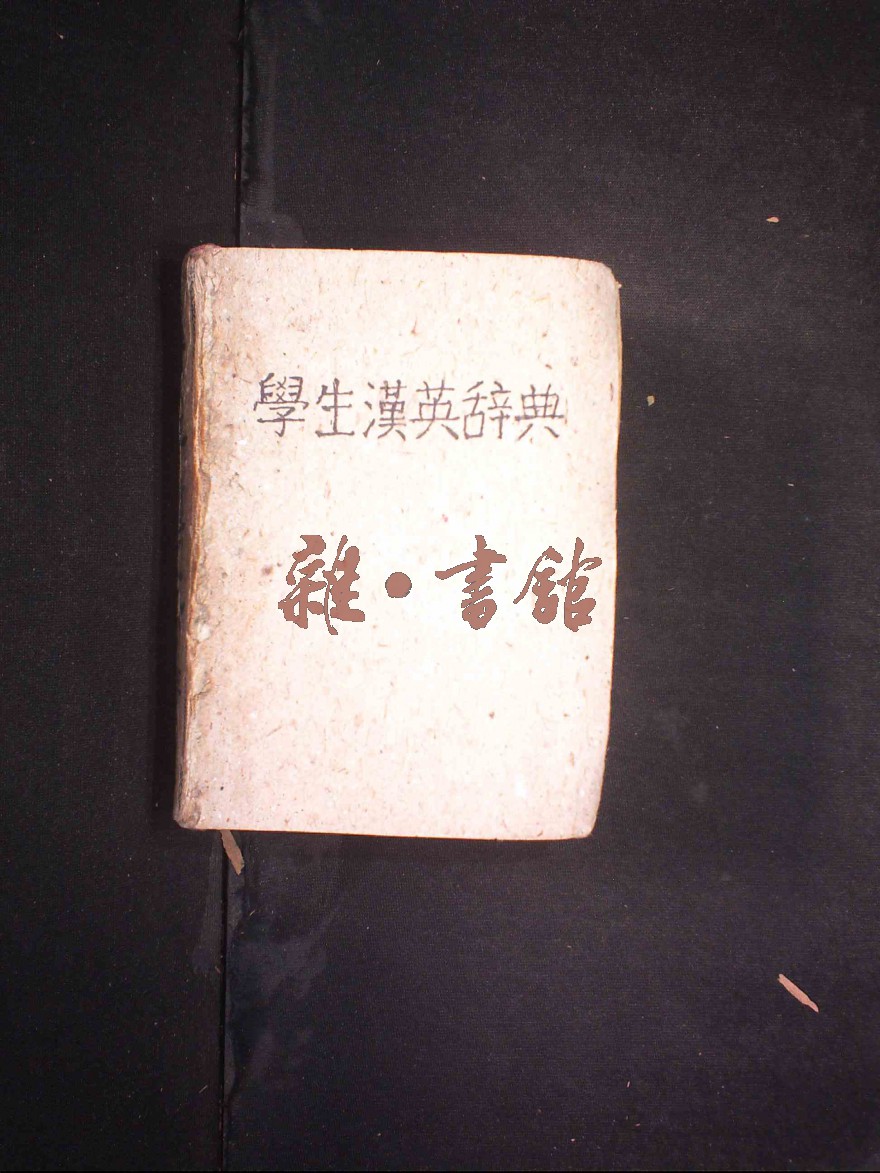 學生漢英辞典
雜·書館